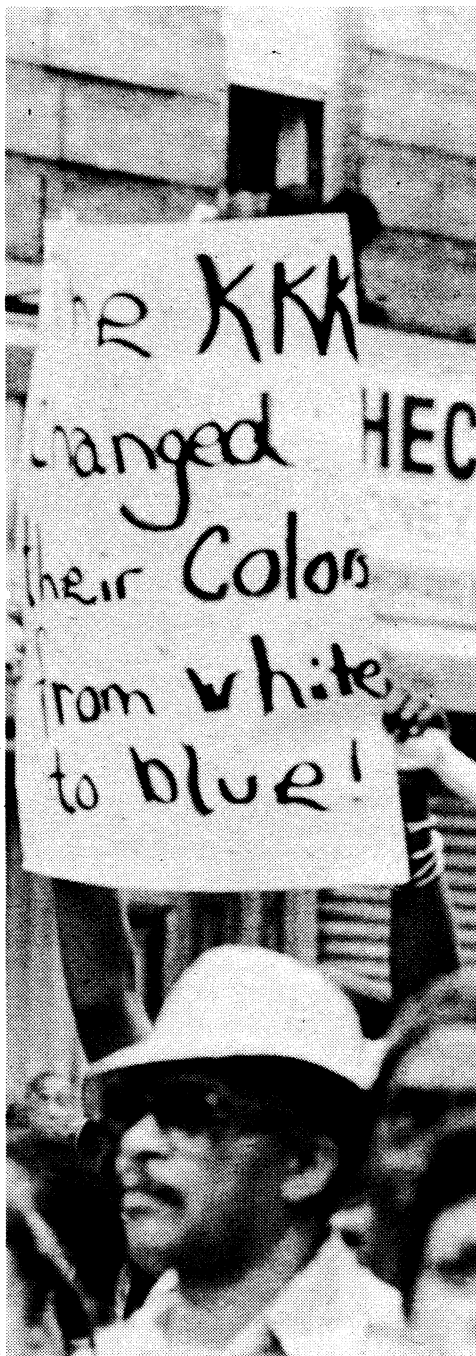 The KKK
changed
their Colors
from white
to blue!
HEC